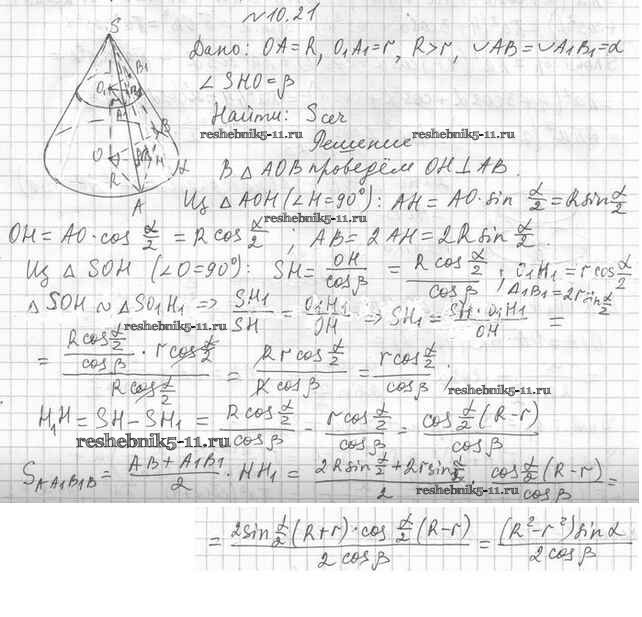 №10.21
Дано: OA=R, O₁A₁=r, R>r, ∪AB=∪A₁B₁=α
∠SHO=β
Найти: Sсеч
reshebnik5-11.ru reshebnik5-11.ru
Решение
В △AOB проведём OH⊥AB.
Из △AOH (∠H=90°): AH=AO·sin α/2=R sin α/2
reshebnik5-11.ru
OH=AO·cos α/2=R cos α/2, AB=2AH=2R sin α/2.
Из △SOH (∠O=90°): SH=OH/cos β=(R cos α/2)/cos β; O₁H₁=r cos α/2
A₁B₁=2r sin α/2
△SOH ∾ △SO₁H₁ => SH₁/SH=O₁H₁/OH => SH₁=(SH·O₁H₁)/OH =
reshebnik5-11.ru reshebnik5-11.ru
= ((R cos α/2)/cos β · r cos α/2)/(R cos α/2) = (R r cos α/2)/(R cos β) = (r cos α/2)/cos β;
reshebnik5-11.ru
H₁H=SH-SH₁=(R cos α/2)/cos β - (r cos α/2)/cos β = (cos α/2 (R-r))/cos β
reshebnik5-11.ru
S AA₁B₁B = (AB+A₁B₁)/2 · HH₁ = (2R sin α/2+2r sin α/2)/2 · (cos α/2 (R-r))/cos β =
reshebnik5-11.ru
= (2 sin α/2 (R+r)·cos α/2 (R-r))/(2 cos β) = ((R²-r²) sin α)/(2 cos β)
S
B₁
O₁
H₁
A₁
B
O
H
α
R
A